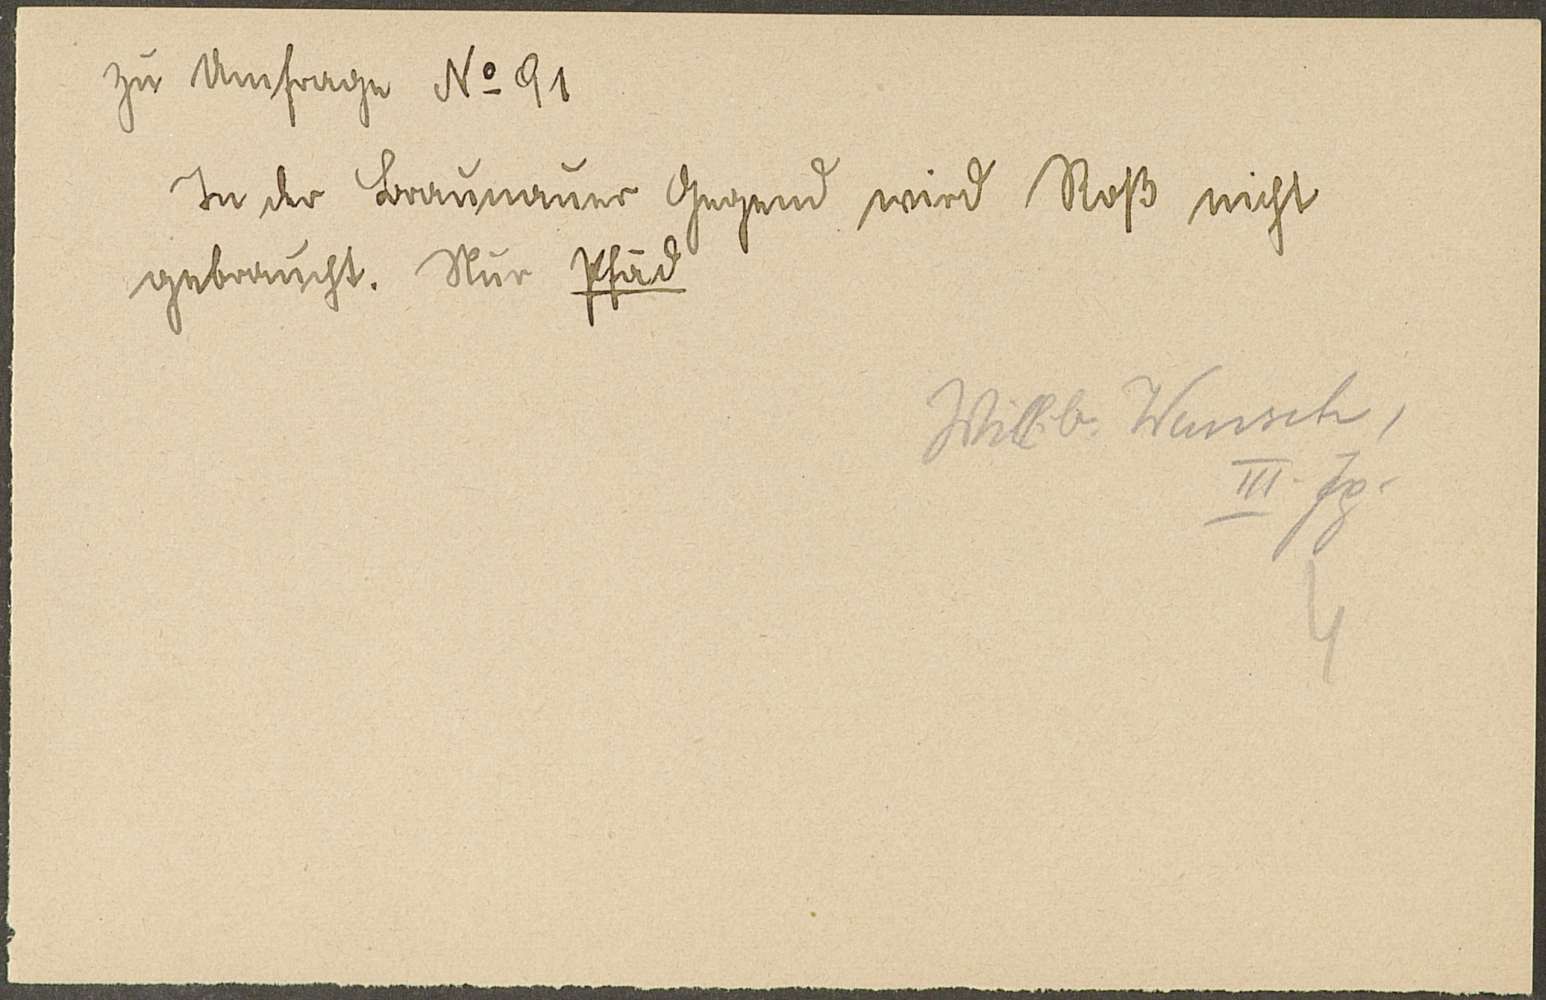 zu Umfrage № 91
In der Braunauer Gegend wird Roß nicht
gebraucht. Nur Pfād
Willib. Wunsch,
III. Jg.
4